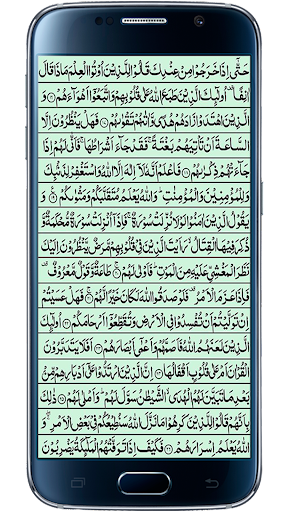 حَتّٰۤى اِذَا خَرَجُوْا مِنْ عِنْدِكَ قَالُوْا لِلَّذِيْنَ اُوْتُوا الْعِلْمَ مَاذَا قَالَ
اٰنِفًا ۫ اُولٰٓئِكَ الَّذِيْنَ طَبَعَ اللّٰهُ عَلٰى قُلُوْبِهِمْ وَاتَّبَعُوْۤا اَهْوَآءَهُمْ ﴿۱۶﴾ وَ
الَّذِيْنَ اهْتَدَوْا زَادَهُمْ هُدًى وَّاٰتٰىهُمْ تَقْوٰىهُمْ ﴿۱۷﴾ فَهَلْ يَنْظُرُوْنَ اِلَّا
السَّاعَةَ اَنْ تَاْتِيَهُمْ بَغْتَةً ۚ فَقَدْ جَآءَ اَشْرَاطُهَا ۚ فَاَنّٰى لَهُمْ اِذَا
جَآءَتْهُمْ ذِكْرٰىهُمْ ﴿۱۸﴾ فَاعْلَمْ اَنَّهٗ لَاۤ اِلٰهَ اِلَّا اللّٰهُ وَاسْتَغْفِرْ لِذَنْۢبِكَ
وَلِلْمُؤْمِنِيْنَ وَالْمُؤْمِنٰتِ ؕ وَاللّٰهُ يَعْلَمُ مُتَقَلَّبَكُمْ وَمَثْوٰىكُمْ ﴿۱۹﴾ وَ
يَقُوْلُ الَّذِيْنَ اٰمَنُوْا لَوْلَا نُزِّلَتْ سُوْرَةٌ ۚ فَاِذَاۤ اُنْزِلَتْ سُوْرَةٌ مُّحْكَمَةٌ وَّ
ذُكِرَ فِيْهَا الْقِتَالُ ۙ رَاَيْتَ الَّذِيْنَ فِيْ قُلُوْبِهِمْ مَّرَضٌ يَّنْظُرُوْنَ اِلَيْكَ
نَظَرَ الْمَغْشِيِّ عَلَيْهِ مِنَ الْمَوْتِ ؕ فَاَوْلٰى لَهُمْ ﴿۲۰﴾ طَاعَةٌ وَّقَوْلٌ مَّعْرُوْفٌ ۫
فَاِذَا عَزَمَ الْاَمْرُ ۫ فَلَوْ صَدَقُوا اللّٰهَ لَكَانَ خَيْرًا لَّهُمْ ﴿۲۱﴾ فَهَلْ عَسَيْتُمْ
اِنْ تَوَلَّيْتُمْ اَنْ تُفْسِدُوْا فِي الْاَرْضِ وَتُقَطِّعُوْۤا اَرْحَامَكُمْ ﴿۲۲﴾ اُولٰٓئِكَ
الَّذِيْنَ لَعَنَهُمُ اللّٰهُ فَاَصَمَّهُمْ وَاَعْمٰۤى اَبْصَارَهُمْ ﴿۲۳﴾ اَفَلَا يَتَدَبَّرُوْنَ
الْقُرْاٰنَ اَمْ عَلٰى قُلُوْبٍ اَقْفَالُهَا ﴿۲۴﴾ اِنَّ الَّذِيْنَ ارْتَدُّوْا عَلٰۤى اَدْبَارِهِمْ مِّنْۢ
بَعْدِ مَا تَبَيَّنَ لَهُمُ الْهُدَى ۙ الشَّيْطٰنُ سَوَّلَ لَهُمْ ؕ وَاَمْلٰى لَهُمْ ﴿۲۵﴾ ذٰلِكَ
بِاَنَّهُمْ قَالُوْا لِلَّذِيْنَ كَرِهُوْا مَا نَزَّلَ اللّٰهُ سَنُطِيْعُكُمْ فِيْ بَعْضِ الْاَمْرِ ۚ
وَاللّٰهُ يَعْلَمُ اِسْرَارَهُمْ ﴿۲۶﴾ فَكَيْفَ اِذَا تَوَفَّتْهُمُ الْمَلٰٓئِكَةُ يَضْرِبُوْنَ